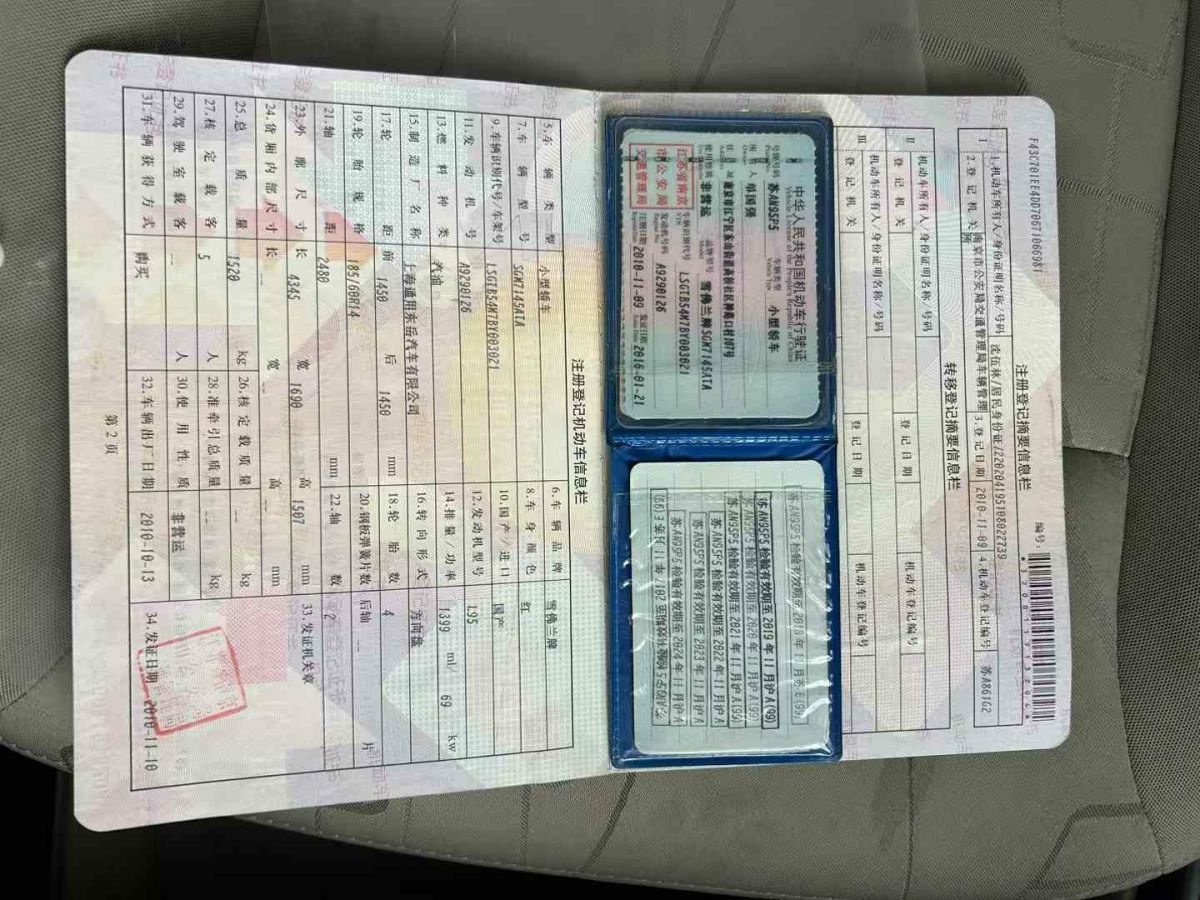 F43C701EE4DD70671066981
编号:
注册登记摘要信息栏
I
1.机动车所有人/身份证明名称/号码 沈伍林/居民身份证/220204195108022739
2.登记机关 南京市公安局交通管理局车辆管理所 3.登记日期 2010-11-09 4.机动车登记编号 苏A861G2
转移登记摘要信息栏
II
机动车所有人/身份证明名称/号码
登记机关 登记日期 机动车登记编号
III
机动车所有人/身份证明名称/号码
登记机关 登记日期 机动车登记编号
中华人民共和国机动车行驶证
Vehicle License of the People's Republic of China
号牌号码 苏AN95P5 车辆类型 小型轿车
所有人
住址 南京市江宁区东山街道高桥社区神路口村107号
使用性质 非营运 品牌型号 雪佛兰牌SGM7145ATA
江苏省南京市公安局交通管理局
车辆识别代号 LSGTB54M7BY003021
发动机号码 A9290126
注册日期 2010-11-09 发证日期 2016-01-21
苏AN95P5 检验有效期至 2019 年 11 月沪A(99)
苏AN95P5 检验有效期至 2020 年 11 月沪A(99)
苏AN95P5 检验有效期至 2021 年 11 月沪A(99)
苏AN95P5 检验有效期至 2022 年 11 月沪A
苏AN95P5 检验有效期至 2023 年 11 月沪A
苏AN95P5 检验有效期至 2024 年 11 月沪A
注册登记机动车信息栏
5.车辆类型 小型轿车 6.车辆品牌 雪佛兰牌
7.车辆型号 SGM7145ATA 8.车身颜色 红
9.车辆识别代号/车架号 LSGTB54M7BY003021 10.国产/进口 国产
11.发动机号 A9290126 12.发动机型号 L95
13.燃料种类 汽油 14.排量/功率 1399 ml/ 69 kw
15.制造厂名称 上海通用东岳汽车有限公司 16.转向形式 方向盘
17.轮距 前 1450 后 1450 mm 18.轮胎数 4
19.轮胎规格 185/60R14 20.钢板弹簧片数 后轴 -- 片
21.轴距 2480 mm 22.轴数 2
23.外廓尺寸 长 4345 宽 1690 高 1507 mm 33.发证机关章
24.货厢内部尺寸 长 -- 宽 -- 高 -- mm
25.总质量 1520 kg 26.核定载质量 -- kg
27.核定载客 5 人 28.准牵引总质量 -- kg
29.驾驶室载客 -- 人 30.使用性质 非营运
31.车辆获得方式 购买 32.车辆出厂日期 2010-10-13 34.发证日期 2010-11-10
第 2 页